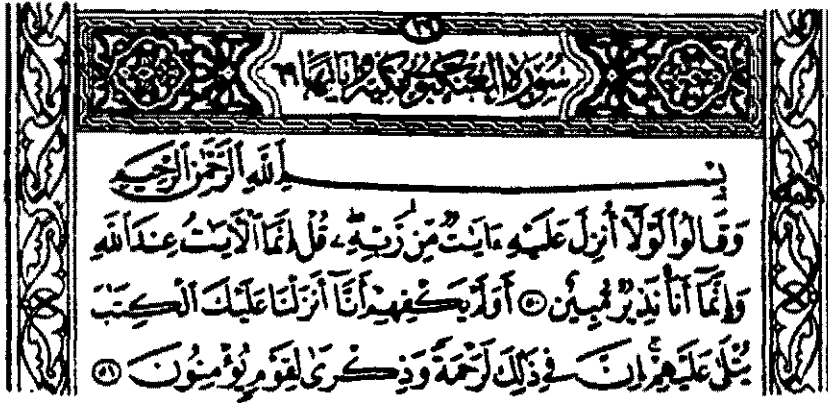 ٢٩
سُورَةُ العَنكَبُوتِ مَكِّيَّة وَآيَاتُهَا ٦٩
بِسْمِ ٱللَّهِ ٱلرَّحْمَٰنِ ٱلرَّحِيمِ
وَقَالُوا۟ لَوْلَآ أُنزِلَ عَلَيْهِ ءَايَٰتٌ مِّن رَّبِّهِۦ ۖ قُلْ إِنَّمَا ٱلْءَايَٰتُ عِندَ ٱللَّهِ
وَإِنَّمَآ أَنَا۠ نَذِيرٌ مُّبِينٌ ۝٥٠ أَوَلَمْ يَكْفِهِمْ أَنَّآ أَنزَلْنَا عَلَيْكَ ٱلْكِتَٰبَ
يُتْلَىٰ عَلَيْهِمْ ۚ إِنَّ فِى ذَٰلِكَ لَرَحْمَةً وَذِكْرَىٰ لِقَوْمٍ يُؤْمِنُونَ ۝٥١